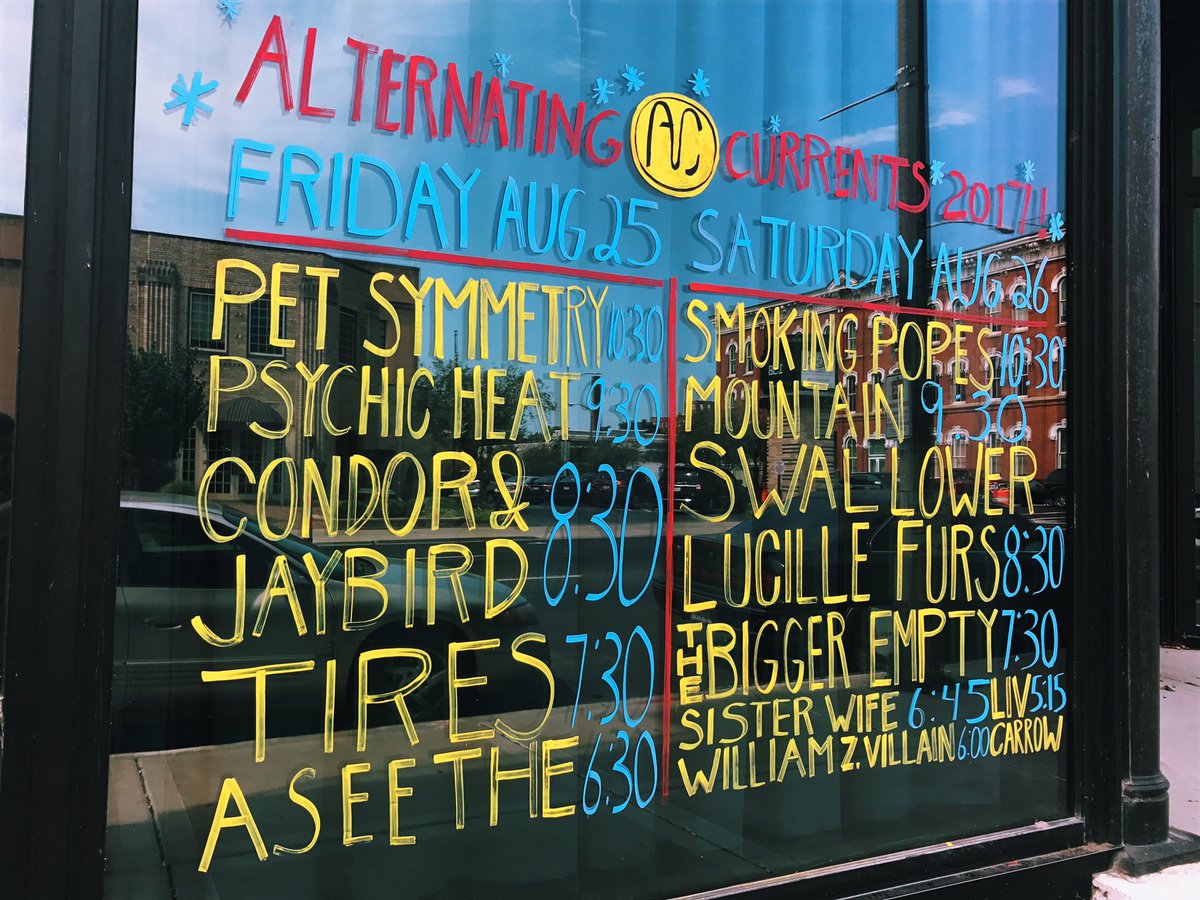 ALTERNATING AC CURRENTS 2017!!
FRIDAY AUG 25
PET SYMMETRY 10:30
PSYCHIC HEAT 9:30
CONDOR &
JAYBIRD 8:30
TIRES 7:30
ASEETHE 6:30
SATURDAY AUG 26
SMOKING POPES 10:30
MOUNTAIN 9:30
SWALLOWER
LUCILLE FURS 8:30
THE BIGGER EMPTY 7:30
SISTER WIFE 6:45 LIV 5:15
WILLIAM Z. VILLAIN 6:00 CARROW